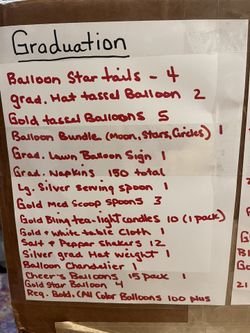 Graduation
Balloon Star tails - 4
grad. Hat tassel Balloon 2
Gold tassel Balloons 5
Balloon Bundle (Moon, Stars, Circles) 1
Grad. Lawn Balloon Sign 1
Grad. Napkins 150 total
Lg. Silver serving spoon 1
Gold Med Scoop spoons 3
Gold Bling tea-light candles 10 (1 pack)
Gold + white table Cloth 1
Salt & Pepper Shakers 12
Silver grad Hat weight 1
Balloon Chandelier 1
Cheer's Balloons 15 pack 1
Gold Star Balloon 4
Reg. Gold, (All Color Balloons 100 plus